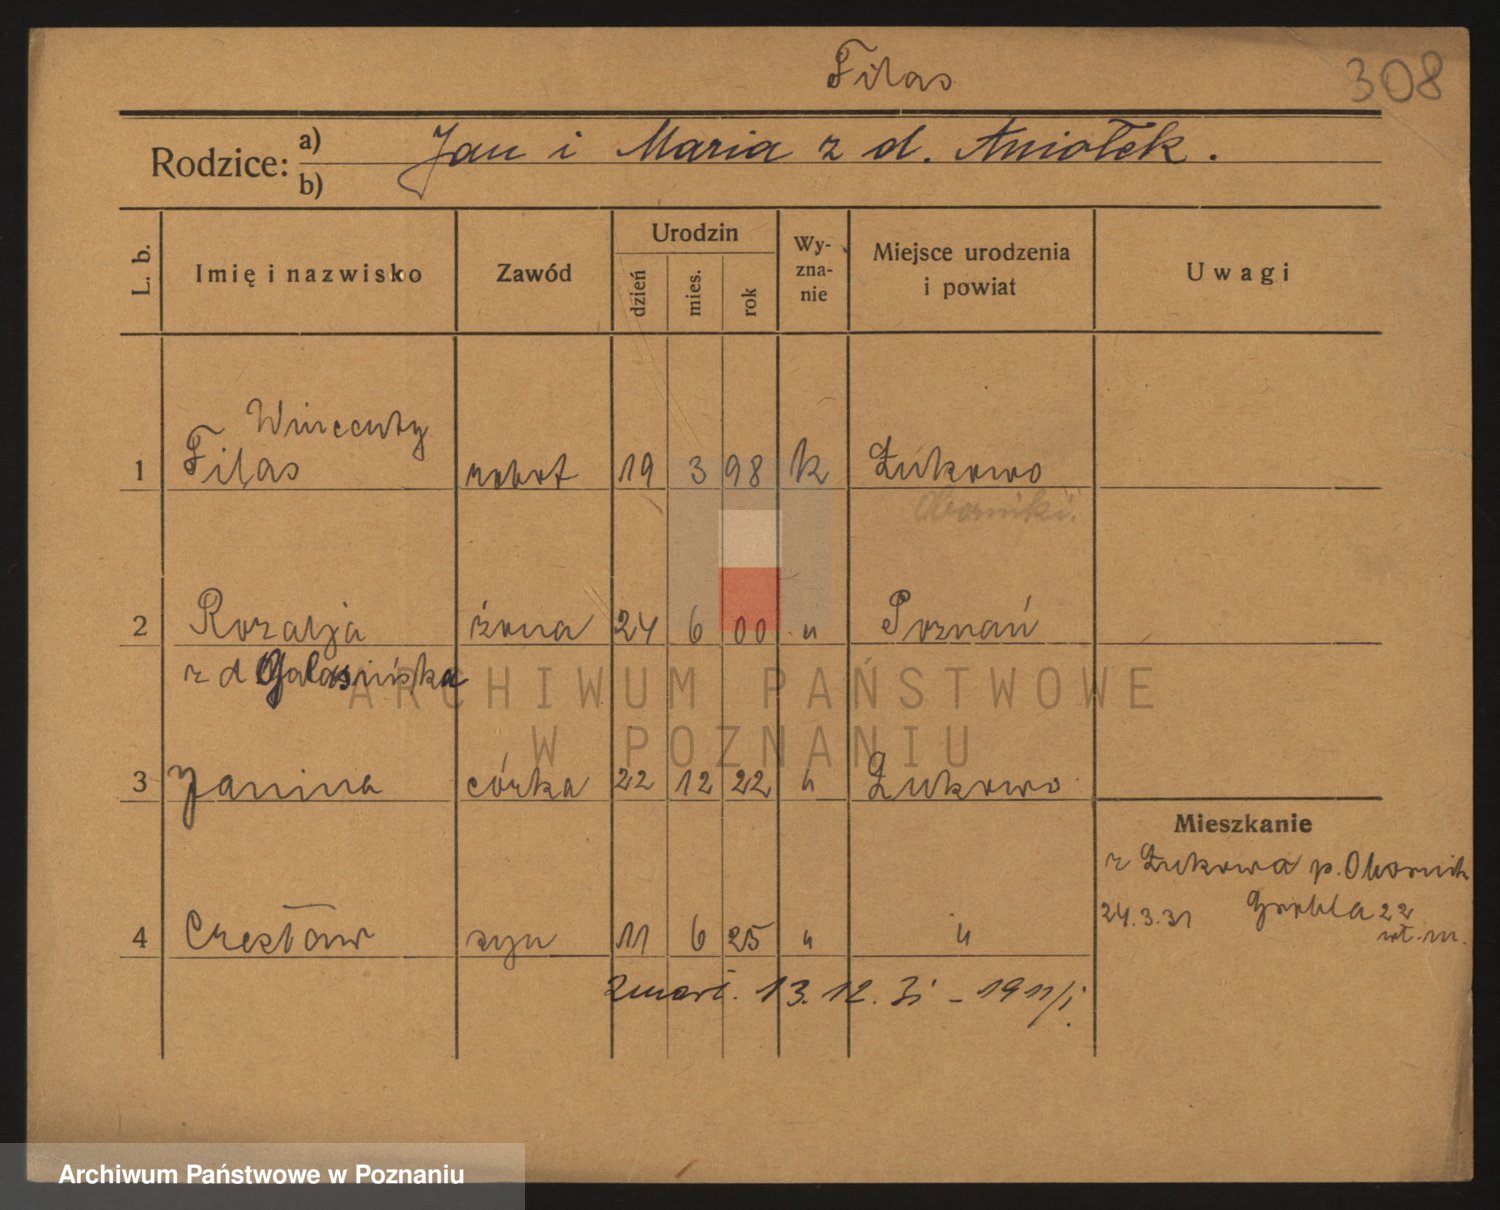 Filas
308
Rodzice: a) Jan i Maria z d. Aniołek.
b)
L. b. Imię i nazwisko Zawód Urodzin dzień mies. rok Wyznanie Miejsce urodzenia i powiat Uwagi
Wincenty
1 Filas robot 19 3 98 k Żukowo
Oborniki.
2 Rozalja żona 24 6 00 " Poznań
z d Galasińska
ARCHIWUM PAŃSTWOWE
W POZNANIU
3 Janina córka 22 12 22 " Żukowo
Mieszkanie
z Żukowa p. Obornik
24.3.31 Grobla 22
wł. m.
4 Czesław syn 11 6 25 " "
zmarł. 13.12.31 - 1911/
Archiwum Państwowe w Poznaniu